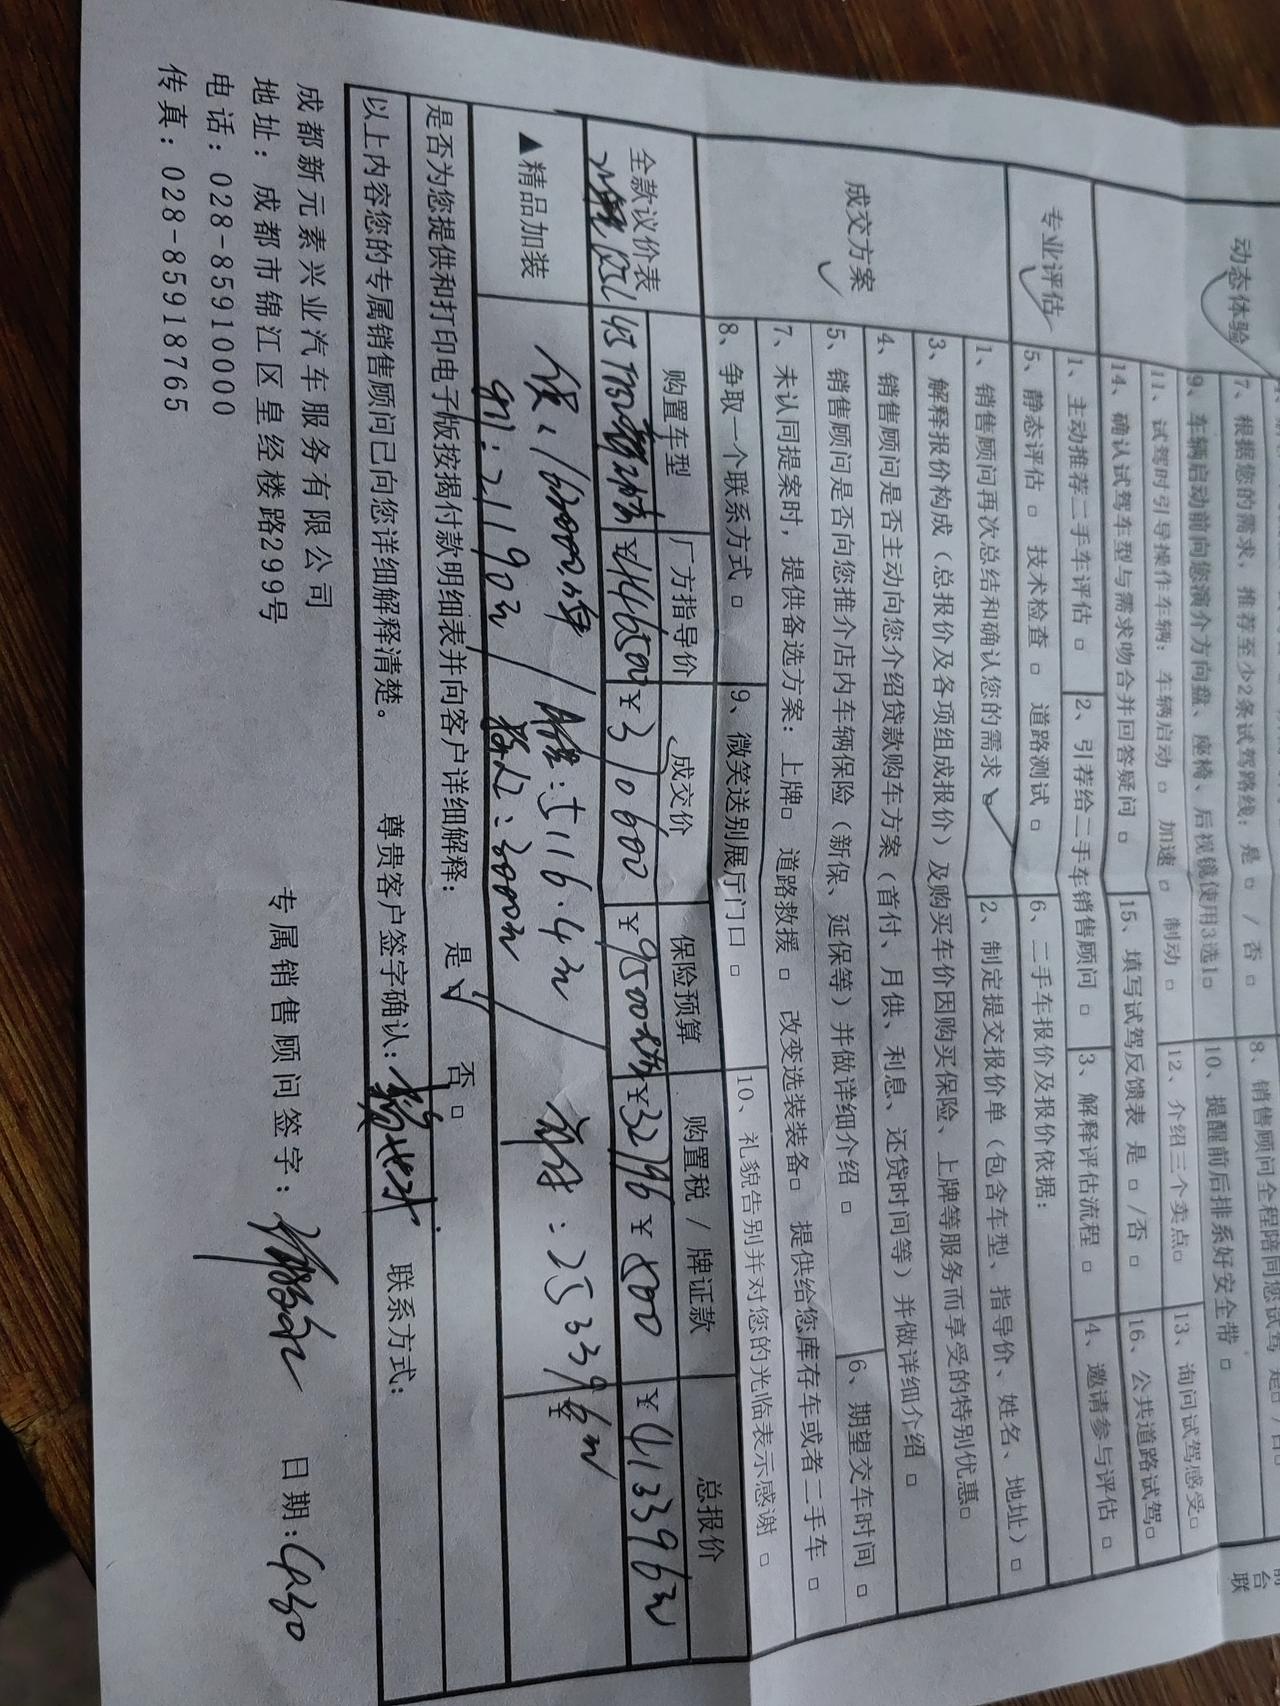 前台联
动态体验
7、根据您的需求，推荐至少2条试驾路线：是□ / 否□
8、销售顾问全程陪同您试驾
9、车辆启动前向您演介方向盘、座椅、后视镜使用3选1□
10、提醒前后排系好安全带 □
11、试驾时引导操作车辆：车辆启动 □ 加速 □ 制动 □
12、介绍三个卖点□
13、询问试驾感受□
14、确认试驾车型与需求吻合并回答疑问 □
15、填写试驾反馈表 是 □ /否 □
16、公共道路试驾□
专业评估
1、主动推荐二手车评估 □
2、引荐给二手车销售顾问 □
3、解释评估流程 □
4、邀请参与评估 □
5、静态评估 □ 技术检查 □ 道路测试 □
6、二手车报价及报价依据：
成交方案
1、销售顾问再次总结和确认您的需求
2、制定提交报价单（包含车型、指导价、姓名、地址）□
3、解释报价构成（总报价及各项组成报价）及购买车价因购买保险、上牌等服务而享受的特别优惠□
4、销售顾问是否主动向您介绍贷款购车方案（首付、月供、利息、还贷时间等）并做详细介绍 □
5、销售顾问是否向您推介店内车辆保险（新保、延保等）并做详细介绍 □
6、期望交车时间 □
7、未认同提案时，提供备选方案：上牌□ 道路救援 □ 改变选装装备□ 提供给您库存车或者二手车 □
8、争取一个联系方式 □
9、微笑送别展厅门口 □
10、礼貌告别并对您的光临表示感谢 □
全款议价表
购置车型
厂方指导价
成交价
保险预算
购置税 / 牌证款
总报价
¥446500
¥310600
¥9500
¥32796
¥800
¥
▲精品加装
: 5116.4元
: 25339
¥
: 21190元
: 3000元
是否为您提供和打印电子版按揭付款明细表并向客户详细解释： 是 否□
以上内容您的专属销售顾问已向您详细解释清楚。 尊贵客户签字确认： 联系方式：
成都新元素兴业汽车服务有限公司 专属销售顾问签字： 日期：
地址：成都市锦江区皇经楼路299号
电话：028-85910000
传真：028-85918765